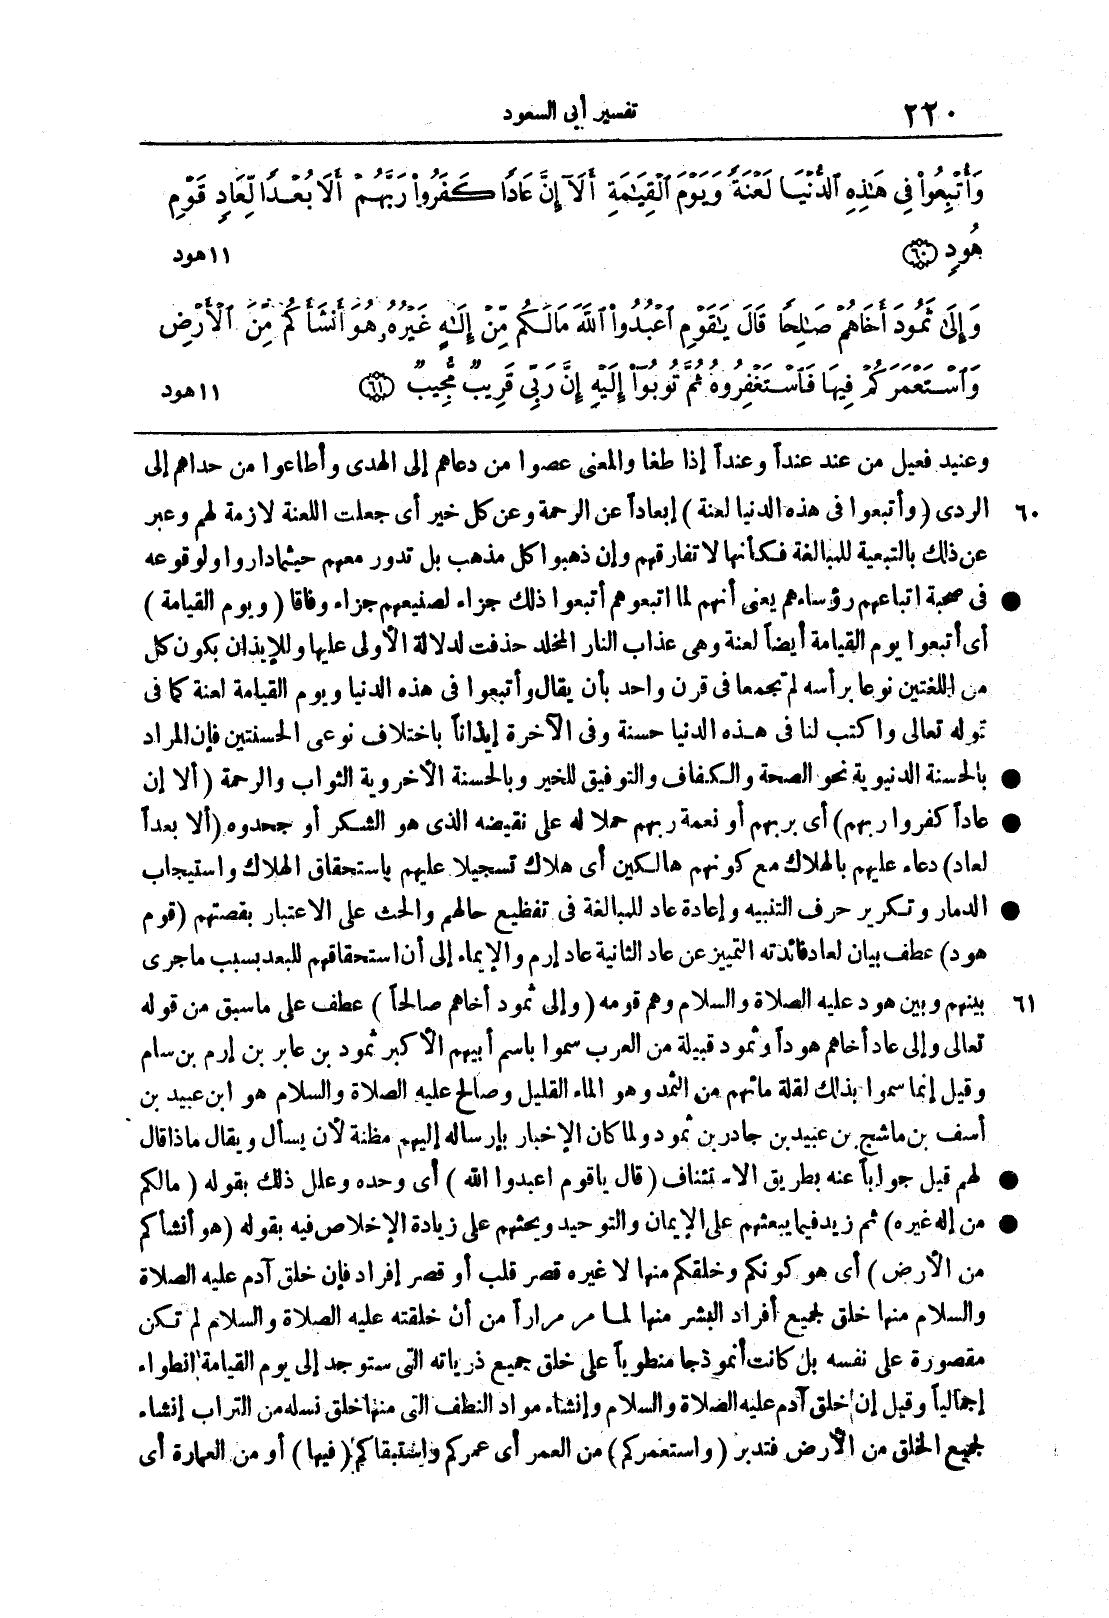 ٢٢٠ تفسير أبى السعود
وَأُتْبِعُوا۟ فِى هَـٰذِهِ ٱلدُّنْيَا لَعْنَةً وَيَوْمَ ٱلْقِيَـٰمَةِ أَلَآ إِنَّ عَادًا كَفَرُوا۟ رَبَّهُمْ أَلَا بُعْدًا لِّعَادٍ قَوْمِ
هُودٍ ﴿٦٠﴾ ١١ هود
وَإِلَىٰ ثَمُودَ أَخَاهُمْ صَـٰلِحًا قَالَ يَـٰقَوْمِ ٱعْبُدُوا۟ ٱللَّهَ مَالَكُم مِّنْ إِلَـٰهٍ غَيْرُهُۥ هُوَ أَنشَأَكُم مِّنَ ٱلْأَرْضِ
وَٱسْتَعْمَرَكُمْ فِيهَا فَٱسْتَغْفِرُوهُ ثُمَّ تُوبُوٓا۟ إِلَيْهِ إِنَّ رَبِّى قَرِيبٌ مُّجِيبٌ ﴿٦١﴾ ١١ هود
وعنيد فعيل من عند عنداً وعنداً إذا طغا والمعنى عصوا من دعاهم إلى الهدى وأطاعوا من حداهم إلى
٦٠ الردى (وأتبعوا فى هذه الدنيا لعنة) إبعاداً عن الرحمة وعن كل خير أى جعلت اللعنة لازمة لهم وعبر
عن ذلك بالتبعية للمبالغة فكأنها لا تفارقهم وإن ذهبوا كل مذهب بل تدور معهم حيثما داروا ولوقوعه
● فى صحبة اتباعهم رؤساءهم يعنى أنهم لما اتبعوهم أتبعوا ذلك جزاء لصنيعهم جزاء وفاقا (ويوم القيامة)
أى أتبعوا يوم القيامة أيضاً لعنة وهى عذاب النار المخلد حذفت لدلالة الأولى عليها وللإيذان بكون كل
من اللغتين نوعا برأسه لم تجمعا فى قرن واحد بأن يقال وأتبعوا فى هذه الدنيا ويوم القيامة لعنة كما فى
قوله تعالى واكتب لنا فى هذه الدنيا حسنة وفى الآخرة إيذاناً باختلاف نوعى الحسنتين فإن المراد
● بالحسنة الدنيوية نحو الصحة والكفاف والتوفيق للخير وبالحسنة الأخروية الثواب والرحمة (ألا إن
● عاداً كفروا ربهم) أى بربهم أو نعمة ربهم حملا له على نقيضه الذى هو الشكر أو جحدوه (ألا بعداً
لعاد) دعاء عليهم بالهلاك مع كونهم هالكين أى هلاك تسجيلا عليهم باستحقاق الهلاك واستيجاب
● الدمار وتكرير حرف التنبيه وإعادة عاد للمبالغة فى تفظيع حالهم والحث على الاعتبار بقصتهم (قوم
هود) عطف بيان لعاد فائدته التمييز عن عاد الثانية عاد إرم والإيماء إلى أن استحقاقهم للبعد بسبب ماجرى
٦١ بينهم وبين هود عليه الصلاة والسلام وهم قومه (وإلى ثمود أخاهم صالحاً) عطف على ماسبق من قوله
تعالى وإلى عاد أخاهم هوداً وثمود قبيلة من العرب سموا باسم أبيهم الأكبر ثمود بن عابر بن إرم بن سام
وقيل إنما سموا بذلك لقلة مائهم من الثمد وهو الماء القليل وصالح عليه الصلاة والسلام هو ابن عبيد بن
أسف بن ماشج بن عبيد بن جادر بن ثمود ولما كان الإخبار بإرساله إليهم مظنة لأن يسأل ويقال ماذا قال
● لهم قيل جواباً عنه بطريق الاستئناف (قال ياقوم اعبدوا الله) أى وحده وعلل ذلك بقوله (مالكم
● من إله غيره) ثم زيد فيما يبعثهم على الإيمان والتوحيد ويحثهم على زيادة الإخلاص فيه بقوله (هو أنشأكم
من الأرض) أى هو كونكم وخلقكم منها لا غيره قصر قلب أو قصر إفراد فإن خلق آدم عليه الصلاة
والسلام منها خلق لجميع أفراد البشر منها لما مر مراراً من أن خلقته عليه الصلاة والسلام لم تكن
مقصورة على نفسه بل كانت أنموذجا منطوياً على خلق جميع ذرياته التى ستوجد إلى يوم القيامة انطواء
إجمالياً وقيل إن خلق آدم عليه الصلاة والسلام وإنشاء مواد النطف التى منها خلق نسله من التراب إنشاء
لجميع الخلق من الأرض فتدبر (واستعمركم) من العمر أى عمركم واستبقاكم (فيها) أو من العمارة أى